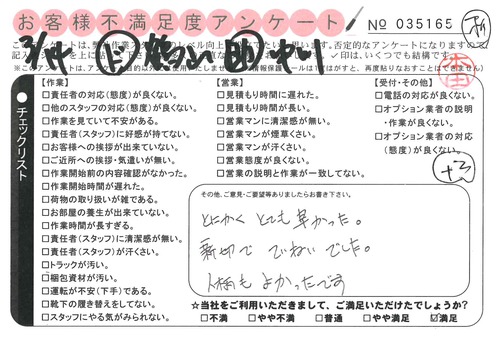 お客様不満足度アンケート
No 035165
【作業】
□責任者の対応(態度)が良くない。
□他のスタッフの対応(態度)が良くない。
□作業を見ていて不安がある。
□責任者(スタッフ)に好感が持てない。
□お客様への挨拶が出来ていない。
□ご近所への挨拶・気遣いが無い。
□作業開始前の内容確認がなかった。
□作業開始時間が遅れた。
□荷物の取り扱いが雑である。
□お部屋の養生が出来ていない。
□作業時間が長すぎる。
□責任者(スタッフ)に清潔感が無い。
□責任者(スタッフ)が汗くさい。
□トラックが汚い。
□梱包資材が汚い。
□運転が不安(下手)である。
□靴下の履き替えをしてない。
□スタッフにやる気がみられない。
チェックリスト
【営業】
□見積もり時間に遅れた。
□見積もり時間が長い。
□営業マンに清潔感が無い。
□営業マンが煙草くさい。
□営業マンが汗くさい。
□営業態度が良くない。
□営業の説明と作業が一致してない。
【受付・その他】
□電話の対応が良くない。
□オプション業者の説明
・作業が良くない。
□オプション業者の対応
(態度)が良くない。
その他、ご意見・ご要望等ありましたらお書き下さい。
とにかく とても 早かった。
親切で ていねい でした。
人柄も よかったです
☆当社をご利用いただきまして、ご満足いただけたでしょうか?
□不満 □やや不満 □普通 □やや満足 ☑満足